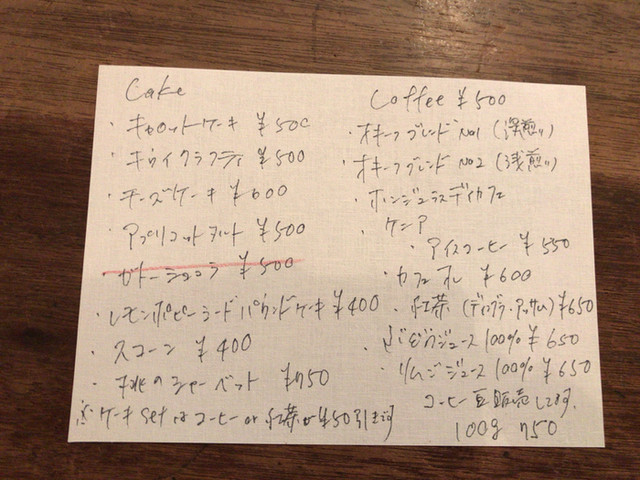 Cake
・キャロットケーキ ¥500
・キウイクラフティ ¥500
・チーズケーキ ¥600
・アプリコットタルト ¥500
・ガトーショコラ ¥500
・レモンポピーシードパウンドケーキ ¥400
・スコーン ¥400
・桃のシャーベット ¥750
※ケーキsetはコーヒーor紅茶が¥50引きです
Coffee ¥500
・オキーフブレンドNo1 (深煎り)
・オキーフブレンドNo2 (浅煎り)
・ホンジュラスディカフェ
・ケニア
・アイスコーヒー ¥550
・カフェオレ ¥600
・紅茶 (ディンブラ・アッサム) ¥650
・ぶどうジュース100% ¥650
・リンゴジュース100% ¥650
コーヒー豆販売してます。
100g 750